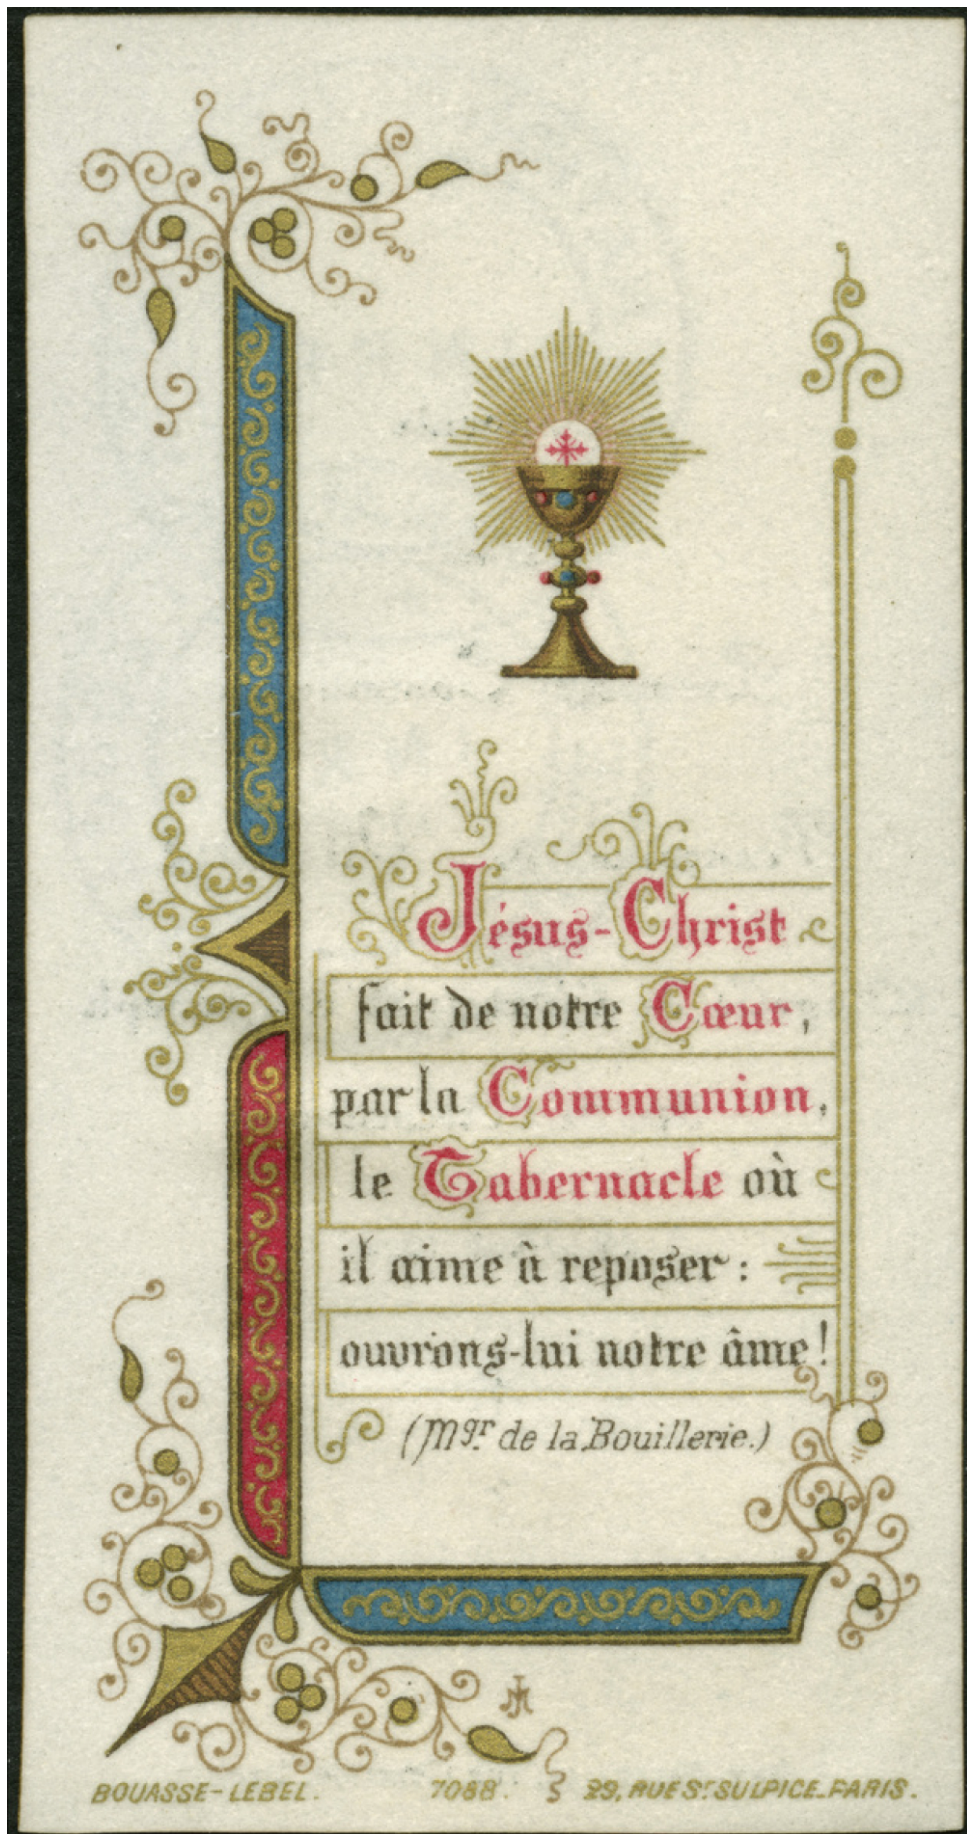 Jésus-Christ
fait de notre Cœur,
par la Communion,
le Tabernacle où
il aime à reposer :
ouvrons-lui notre âme!
(Mgr. de la Bouillerie.)
BOUASSE-LEBEL. 7088. 29, RUE St. SULPICE. PARIS.